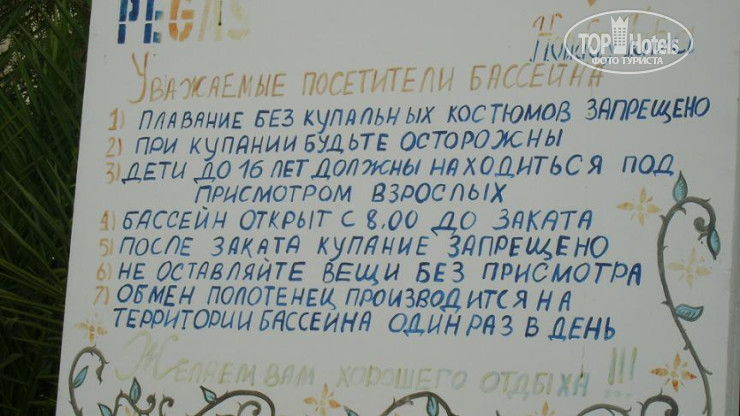 PEGAS
TOP Hotels
ФОТО ТУРИСТА
УВАЖАЕМЫЕ ПОСЕТИТЕЛИ БАССЕЙНА
1) ПЛАВАНИЕ БЕЗ КУПАЛЬНЫХ КОСТЮМОВ ЗАПРЕЩЕНО
2) ПРИ КУПАНИИ БУДЬТЕ ОСТОРОЖНЫ
3) ДЕТИ ДО 16 ЛЕТ ДОЛЖНЫ НАХОДИТЬСЯ ПОД
ПРИСМОТРОМ ВЗРОСЛЫХ
4) БАССЕЙН ОТКРЫТ С 8.00 ДО ЗАКАТА
5) ПОСЛЕ ЗАКАТА КУПАНИЕ ЗАПРЕЩЕНО
6) НЕ ОСТАВЛЯЙТЕ ВЕЩИ БЕЗ ПРИСМОТРА
7) ОБМЕН ПОЛОТЕНЕЦ ПРОИЗВОДИТСЯ НА
ТЕРРИТОРИИ БАССЕЙНА ОДИН РАЗ В ДЕНЬ
ЖЕЛАЕМ ВАМ ХОРОШЕГО ОТДЫХА !!!